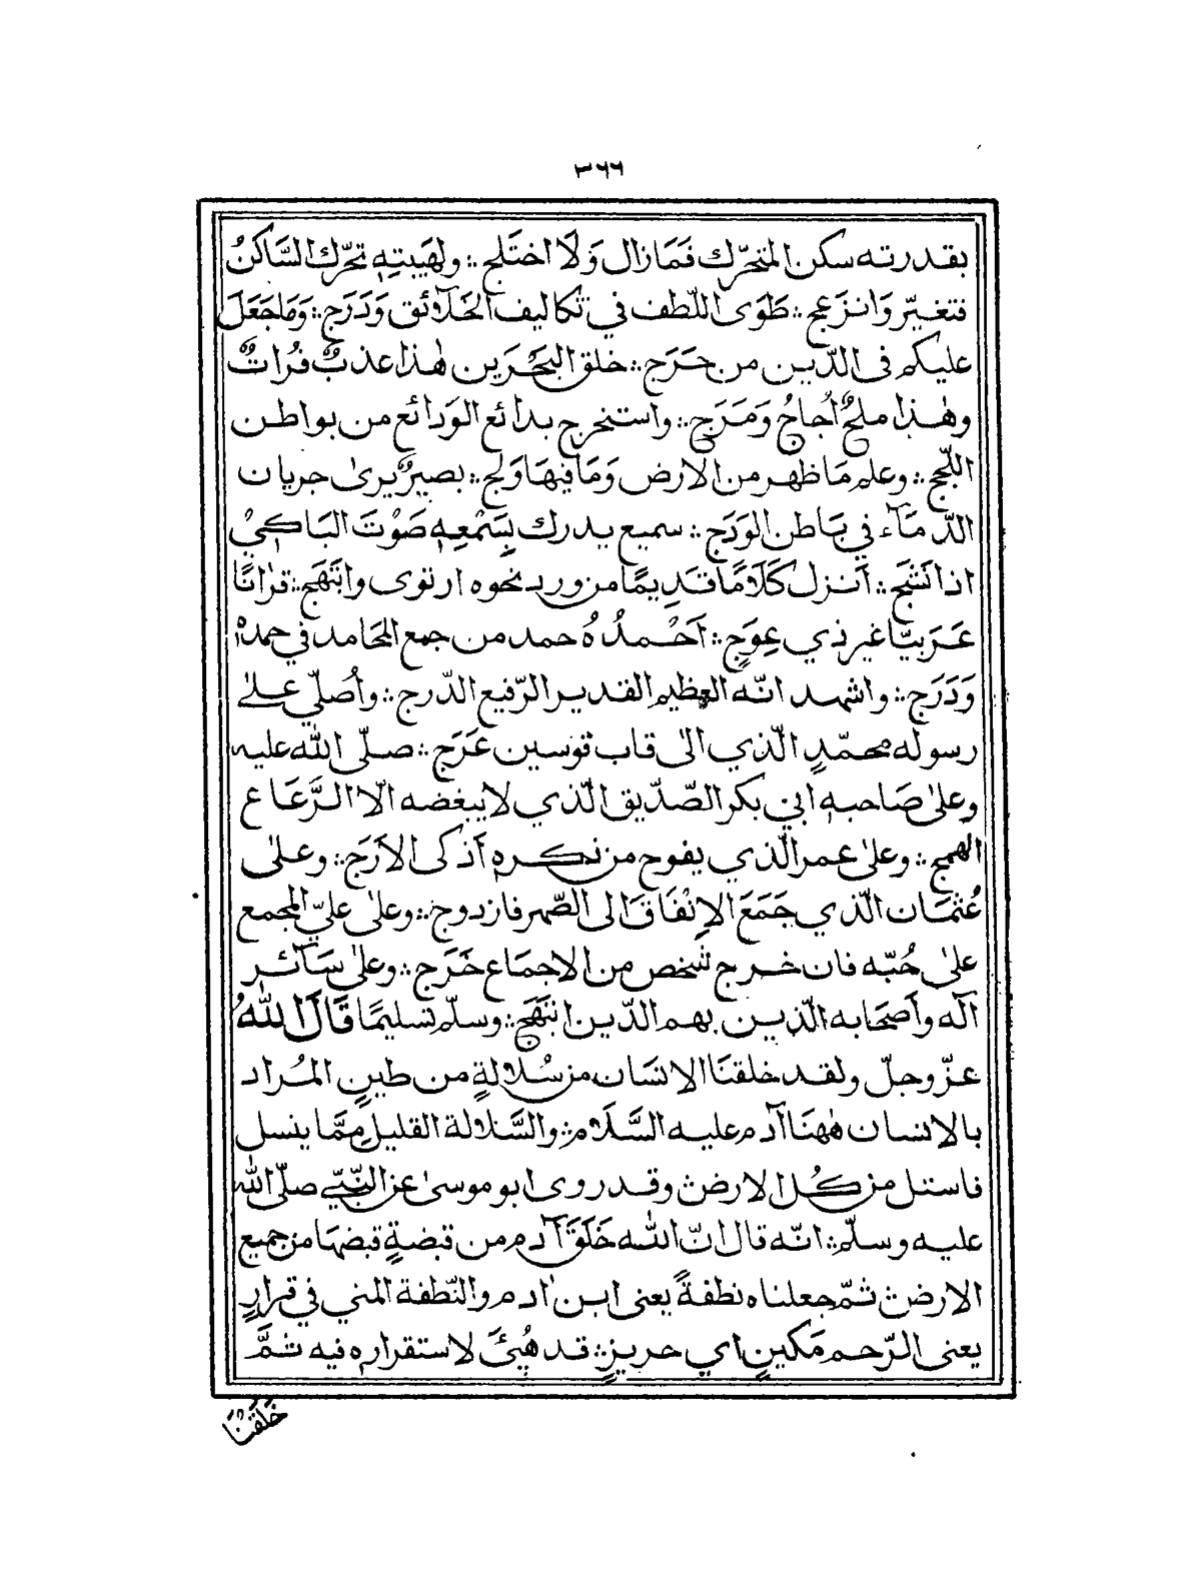 ٣٦٦
بقدرته سكن المتحرّك فَمَا زال وَلَا اختَلج ؞ ولهَيبتِهٖ تحرّك السَّاكنُ
فتغيّر وَانزعج ؞ طَوَى اللّطف في تكاليف الخَلَآئق وَدَرَج ؞ وَمَا جَعَلَ
عليكم فى الدّين من حَرَج ؞ خلق البَحْرَين هٰذا عذبٌ فُراتٌ
وهٰذا ملحٌ أجاجُ وَمَرَج ؞ واستخرج بدائع الوَدائع من بواطن
اللّجج ؞ وعلم مَا ظهر من الارض وَمَا فيهَا وَلج ؞ بصيرٌ يرىٰ جريان
الدّمَآء في بَاطن الوَدَج ؞ سميع يدرك بِسَمْعِهٖ صَوْتَ البَاكِيْ
اذا نَشَج ؞ أنزل كَلَامًا قَدِيمًا من ورد نحوه ارتوى وابتَهَج ؞ قراٰنًا
عَرَبيّا غير ذي عِوَجٍ ؞ أحْمدُهُ حمد من جمع المحَامد في حمدهْ
وَدَرَج ؞ واشهد انّه العظيم القدير الرّفيع الدّرج ؞ وأصَلّي علىٰ
رسوله محمّدٍ الّذي الىٰ قاب قوسين عَرَج ؞ صلّى الله عليه
وعلىٰ صَاحبهٖ ابي بكر الصّدّيق الّذي لا يبغضه الّا الرَّعَاع
الهمج ؞ وعلىٰ عمر الّذي يفوح من نكرهٖ أذكى الأرَج ؞ وعلىٰ
عُثمَان الّذي جَمَعَ الاِنْفَاقَ الى الصّهر فازدوج ؞ وعلىٰ عليّ المجمع
علىٰ حُبّه فان خرج شخص من الاجمَاع خَرَج ؞ وعلىٰ سَآئر
آله وأصحَابه الّذين بهم الدّين ابتَهَج ؞ وسلّم تسليمًا قَالَ اللهُ
عزّ وجلّ ولقد خلقنَا الانسَان من سُلالةٍ من طينٍ المُراد
بالانسان هٰهنَا آدم عليه السَّلَام ؞ والسَّلالة القليل مِمَّا ينسل
فاستل من كُل الارض ؞ وقد روى ابو موسىٰ عن النّبيّ صلّى الله
عليه وسلّم ؞ انّه قال انّ الله خَلَقَ آدم من قبضةٍ قبضهَا من جميع
الارض ؞ ثمّ جعلناه نطفةً يعنى ابن اٰدم والنّطفة المني في قرارٍ
يعنى الرّحم مَكينٍ اي حريزٍ ؞ قد هُيّئَ لاستقراره فيه ثمَّ
خَلَقْنَا